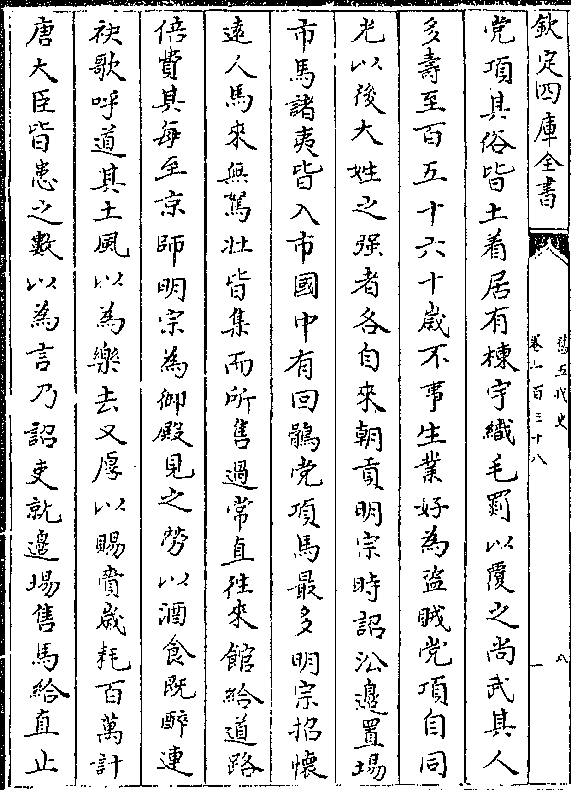 欽定四庫全書
舊五代史
卷一百三十八
八
党項其俗皆土着居有棟宇織毛罽以覆之尚武其人
多壽至百五十六十歲不事生業好為盜賊党項自同
光以後大姓之强者各自來朝貢明宗時詔沿邊置場
市馬諸夷皆入市國中有回鶻党項馬最多明宗招懷
逺人馬來無駑壯皆集而所售過常直往來館給道路
倍費其每至京師明宗為御殿見之勞以酒食既醉連
袂歌呼道其土風以為樂去又厚以賜賚歲耗百萬計
唐大臣皆患之數以為言乃詔吏就邊場售馬給直止